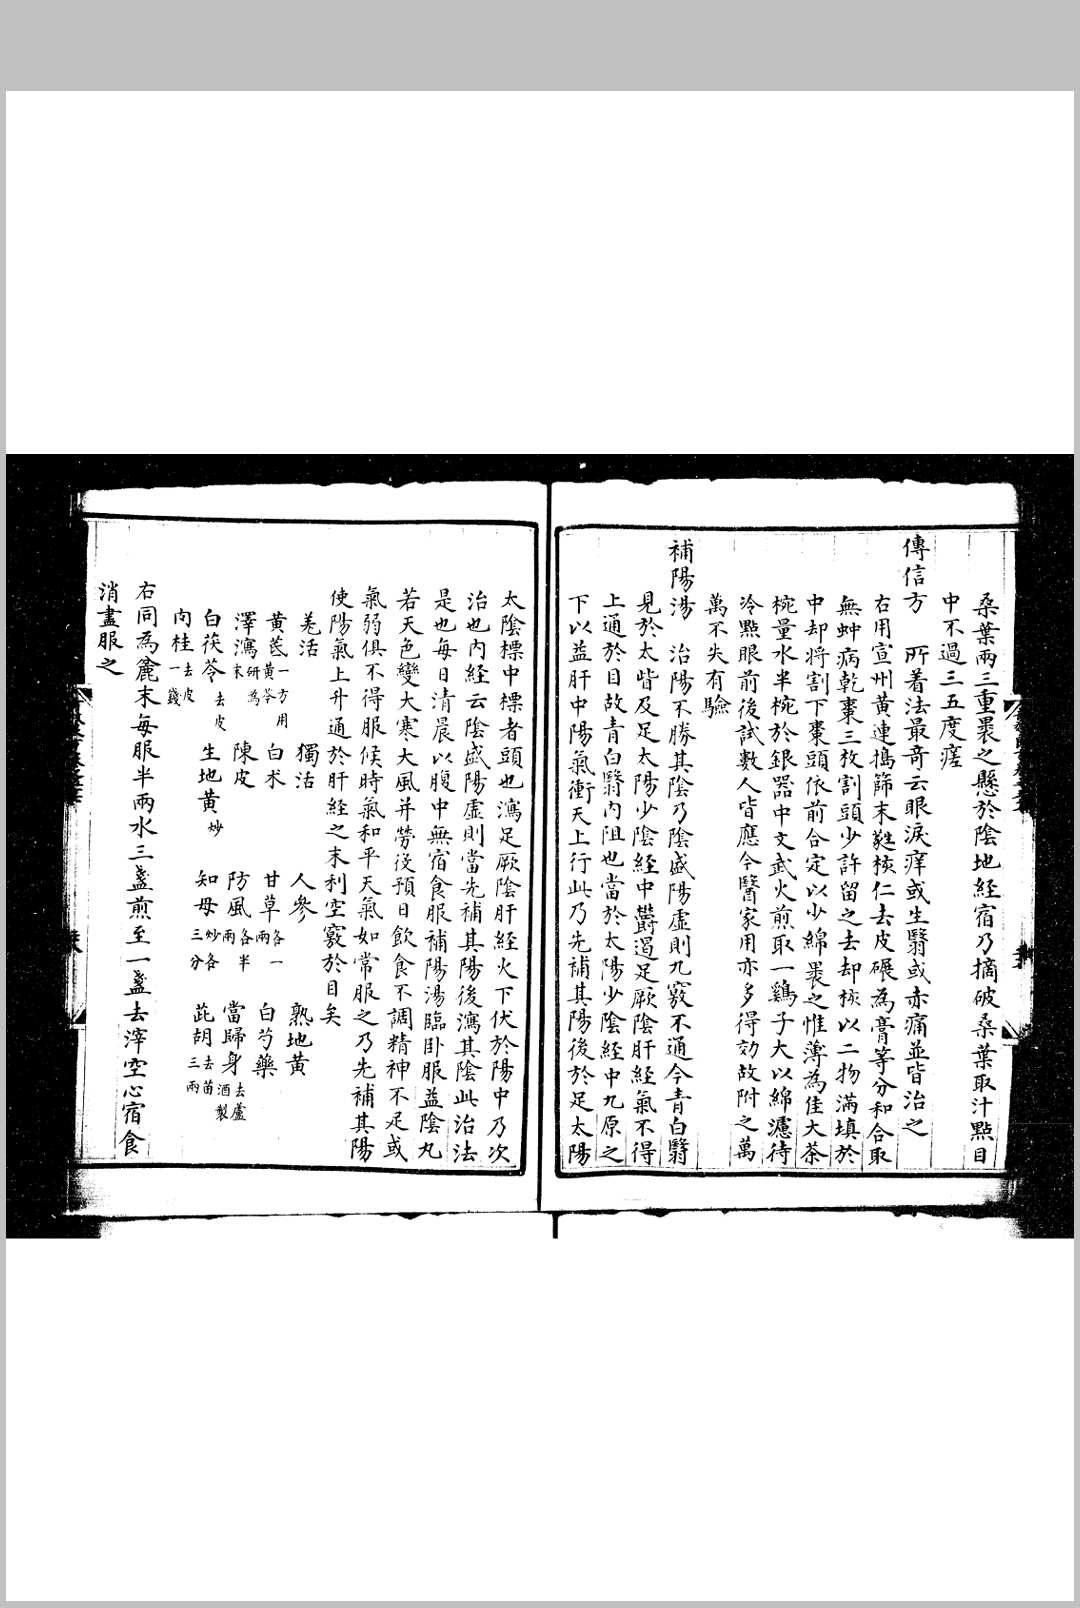 桑葉兩三重褁之懸於陰地経宿乃摘破桑葉取汁㸃目
中不過三五度瘥
傳信方　所着法最竒云眼淚痒或生翳或赤痛並皆治之
右用宣州黄連搗篩末蕤核仁去皮碾為膏等分和合取
無蚛病乾棗三枚割頭少許留之去却核以二物滿填於
中却将割下棗頭依前合定以少綿褁之惟薄為佳大茶
椀量水半椀於銀器中文武火煎取一鷄子大以綿濾待
冷㸃眼前後試數人皆應今醫家用亦多得効故附之萬
萬不失有驗
補陽湯　治陽不勝其陰乃陰盛陽虛則九竅不通今青白翳
見於太眥及足太陽少陰経中欝遏足厥陰肝経氣不得
上通於目故青白翳内阻也當於太陽少陰経中九原之
下以益肝中陽氣衝天上行此乃先補其陽後於足太陽
太陰標中標者頭也瀉足厥陰肝経火下伏於陽中乃次
治也内経云陰盛陽虛則當先補其陽後瀉其陰此治法
是也每日清晨以腹中無宿食服補陽湯臨卧服益陰丸
若天色變大寒大風并勞役預日飲食不調精神不足或
氣弱俱不得服候時氣和平天氣如常服之乃先補其陽
使陽氣上升通於肝経之末利空竅於目矣
羗活　獨活　人參　熟地黄
黄芪一方用黄芩　白术　甘草各一兩　白芍藥
澤瀉研為末　陳皮　防風各半兩　當歸身去蘆酒製
白茯苓去皮　生地黄炒　知母炒各三分　茈胡去苗三兩
肉桂去皮一錢
右同為麄末每服半兩水三盞煎至一盞去滓空心宿食
消盡服之